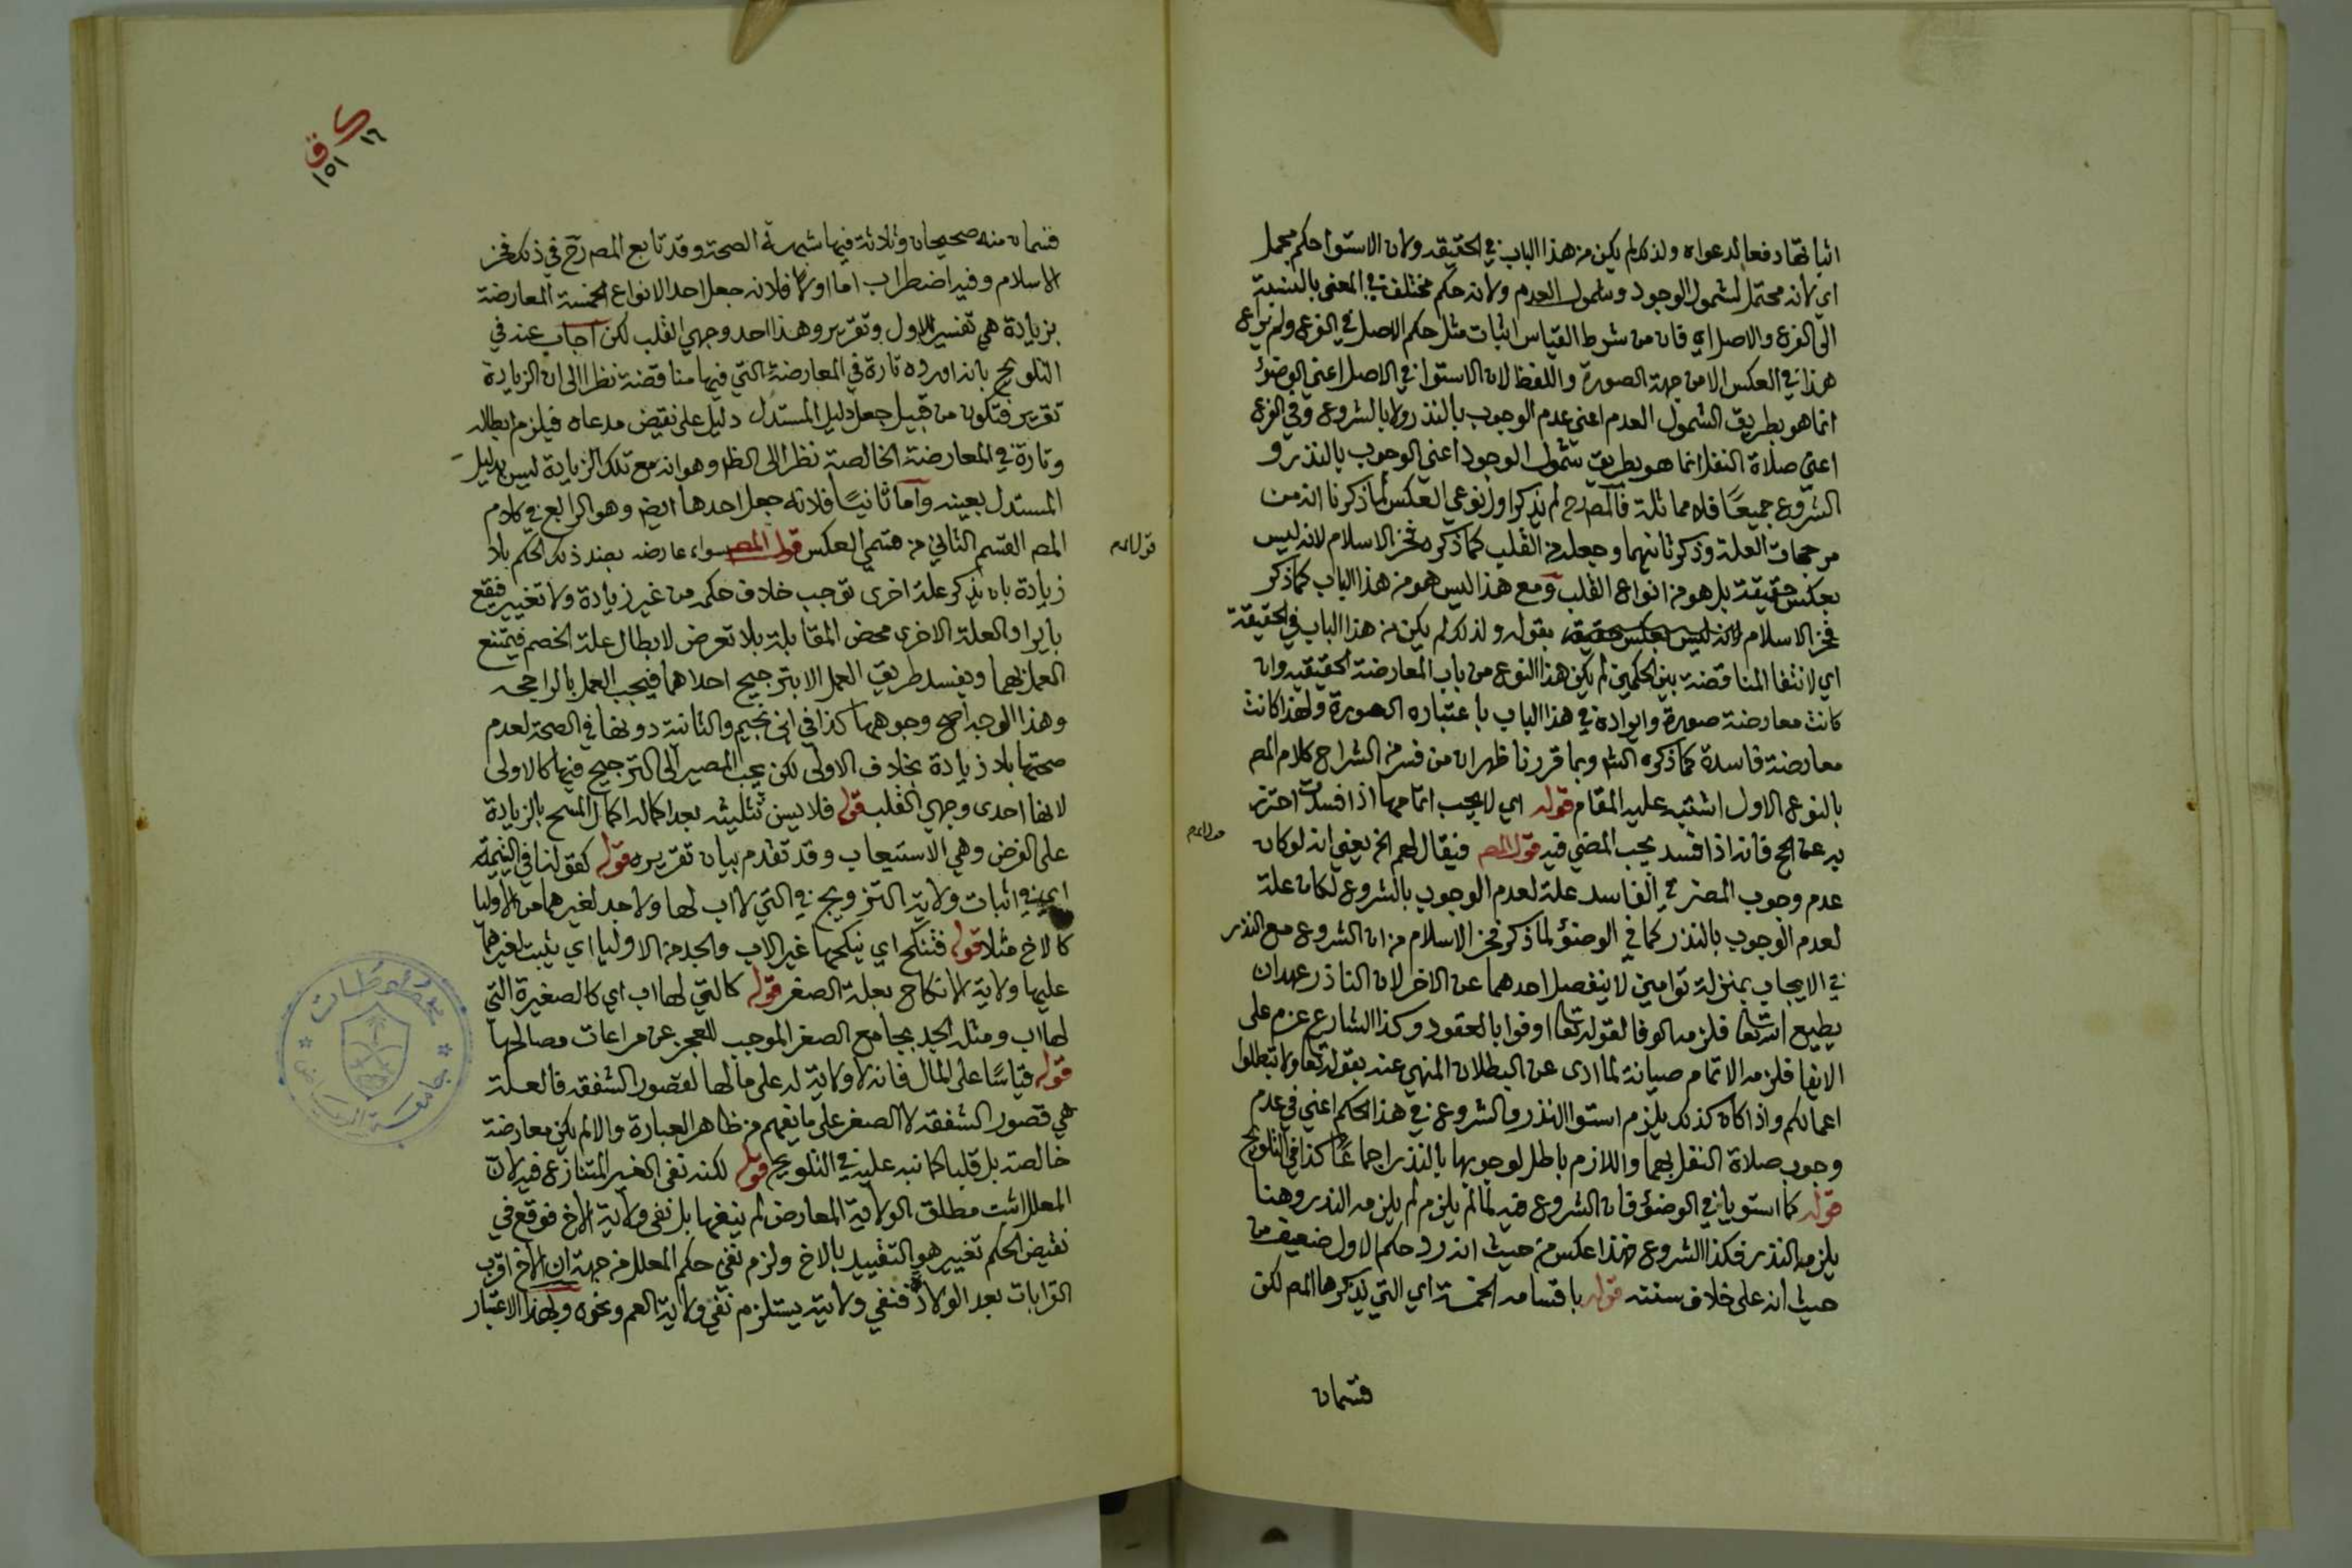 اثباتها دفعا لدعواه ولذلك لم يكن من هذا الباب في الحقيقه ولان الاستوا حكم مجمل
اي لانه محتمل لشمول الوجود وشمول العدم ولانه حكم مختلف في المعنى بالنسبة
الى الفرع والاصل اي فان من شرط القياس اثبات مثل حكم الاصل في الفرع ولم يراع
هذا في العكس الا من جهة الصورة واللفظ لان الاستوا في الاصل اعني الوضؤ
انما هو بطريق الشمول العدم اعني عدم الوجوب بالنذر ولا بالشروع وفي الفرع
اعني صلاة النفل انما هو بطريق شمول الوجود اعني الوجوب بالنذر و
الشروع جميعًا فلا مماثلة فالمص رح لم يذكر اول نوعي العكس لما ذكرنا انه من
مرجحات العلة وذكر ثانيهما وجعله من القلب كما ذكره فخر الاسلام لانه ليس
بعكس حقيقة بل هو من انواع القلب ومع هذا ليس هو من هذا الباب كما ذكر
فخر الاسلام لانه ليس بعكس حقيقة بقوله ولذلك لم يكن من هذا الباب في الحقيقة
اي لانتفا المناقضة بين الحكمين لم يكن هذا النوع من باب المعارضة الحقيقيه وان
كانت معارضة صورة وايراده في هذا الباب باعتباره الصورة ولهذا كانت
معارضة فاسدة كما ذكره الش وبما قررنا ظهر ان من فسر من الشراح كلام المص
بالنوع الاول اشتبه عليه المقام قوله اي لا يجب اتمامها اذا فسدت احترز
به عن الحج فانه اذا فسد يجب المضي فيه قول المص فيقال لهم الخ يعني انه لو كان
عدم وجوب المضي في الفاسد علة لعدم الوجوب بالشروع لكان علة
لعدم الوجوب بالنذر كما في الوضؤ لما ذكر فخر الاسلام من ان الشروع مع النذر
في الايجاب بمنزلة توامين لا ينفصل احدهما عن الاخر لان الناذر عهد ان
يطيع الله تعالى فلزمه الوفا لقوله تعالى اوفوا بالعقود وكذا الشارع عزم على
الايفا فلزمه الاتمام صيانة لما ادى عن البطلان المنهي عنه بقوله تعالى ولا تبطلوا
اعمالكم واذا كان كذلك يلزم استوا النذر والشروع في هذا الحكم اعني في عدم
وجوب صلاة النفل بهما واللازم باطل لوجوبها بالنذر اجماعًا كذا في التلويح
قوله كما استويا في الوضؤ فان الشروع فيه لما لم يلزم لم يلزمه النذر وهنا
يلزمه النذر فكذا الشروع فهذا عكس من حيث انه رد حكم الاول ضعيف من
حيث انه على خلاف سننه قوله باقسامه الخمسة اي التي يذكرها المص لكن
قسمان
قوله الم
ك ١٦
ق ١٥١
قسمان منه صحيحان وثلاثة فيها شبهة الصحة وقد تابع المص رح في ذلك فخر
الاسلام وفيه اضطراب اما اولا فلانه جعل احد الانواع الخمسة المعارضة
بزيادة هي تفسير للاول وتقرير وهذا احد وجهي القلب لكن اجاب عنه في
التلويح بانه اورده تارة في المعارضة التي فيها مناقضة نظرا الى ان الزيادة
تقرير فتكون من قبيل جعل دليل المستدل دليل على نقيض مدعاه فيلزم ابطاله
وتارة في المعارضة الخالصة نظرا الى الظ وهو انه مع تلك الزيادة ليس بدليل
المستدل بعينه واما ثانيًا فلانه جعل احدها ايض وهو الرابع في كلام
المص القسم الثاني من قسمي العكس قول المص سواء عارضه بضد ذلك الحكم بلا
زيادة بان يذكر علة اخرى توجب خلاف حكمه من غير زيادة ولا تغيير فيقع
بايراد العلة الاخرى محض المقابلة بلا تعرض لابطال علة الخصم فيمتنع
العمل بهما ويفسد طريق العمل الا بترجيح احداهما فيجب العمل بالراجحه
وهذا الوجه اصح وجوهها كذا في ابن نجيم والثانية دونها في الصحة لعدم
صحتها بلا زيادة بخلاف الاولى لكن يجب المصير الى الترجيح فيها كالاولى
لانها احدى وجهي القلب قوله فلا يسن تثليثه بعد اكماله اكمال المسح بالزيادة
على الفرض وهي الاستيعاب وقد تقدم بيان تقريره قوله كقولنا في اليتيمة
اي في اثبات ولاية التزويج في التي لا اب لها ولا جد لغيرهما من الاوليا
كالاخ مثلا قوله فتنكح اي ينكحها غير الاب والجد من الاوليا اي يثبت لغيرهما
عليها ولاية الانكاح بعلة الصغر قوله كالتي لها اب اي كالصغيرة التي
لها اب ومثله الجد بجامع الصغر الموجب للعجز عن مراعات مصالحها
قوله قياسًا على المال فانه لا ولاية له على مالها لقصور الشفقه فالعلة
هي قصور الشفقه لا الصغر على ما يفهم من ظاهر العبارة والا لم يكن معارضة
خالصة بل قلبا كما نبه عليه في التلويح قوله لكنه نفى الغير المتنازع فيه لان
المعلل اثبت مطلق الولاية المعارض لم ينفها بل نفى ولاية الاخ فوقع في
نقيض الحكم تغيير هو التقييد بالاخ ولزم نفي حكم المعلل من جهة ان الاخ اقرب
القرابات بعد الولادة فنفي ولايته يستلزم نفي ولاية العم ونحوه ولهذا الاعتبار
قوله الم
جامعة الرياض
مخطوطات